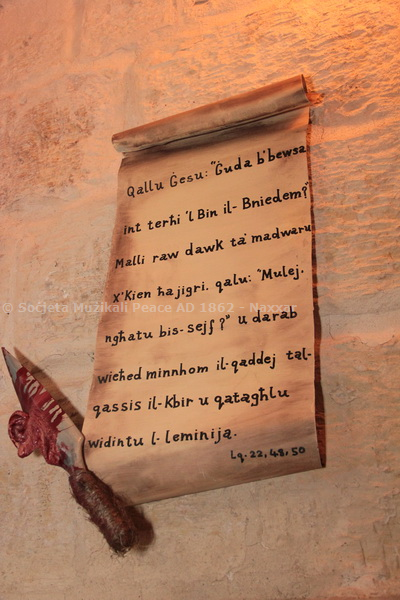 Qallu Ġesu: "Ġuda b'bewsa
int terħi 'l Bin il-Bniedem?"
Malli raw dawk ta' madwaru
x'Kien ħa jigri. qalu: "Mulej.
© Soċjeta Mużikali Peace AD 1862 - Naxxar
ngħatu bis-sejf?" u darab
wieħed minnhom il-qaddej tal-
qassis il-Kbir u qatagħlu
widintu l-leminija.
Lq. 22, 48, 50